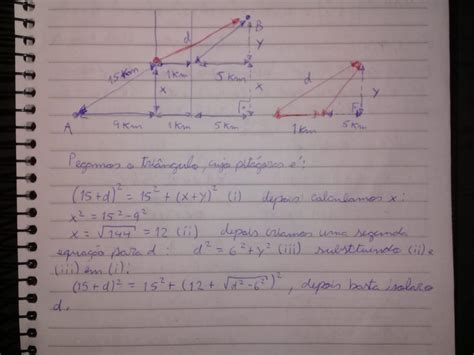 B
d
15 Km
y
1 Km
5 Km
x
x
A
9 Km
1 Km
5 Km
d
y
1 Km
5 Km
Pegamos o triângulo, cujo pitágoras é:
(15+d)² = 15² + (x+y)² (i) depois calculamos x:
x² = 15² - 9²
x = √144 = 12 (ii) depois criamos uma segunda
equação para d: d² = 6² + y² (iii) substituindo (ii) e
(iii) em (i):
(15+d)² = 15² + (12 + √d² - 6²)², depois basta isolar o
d.